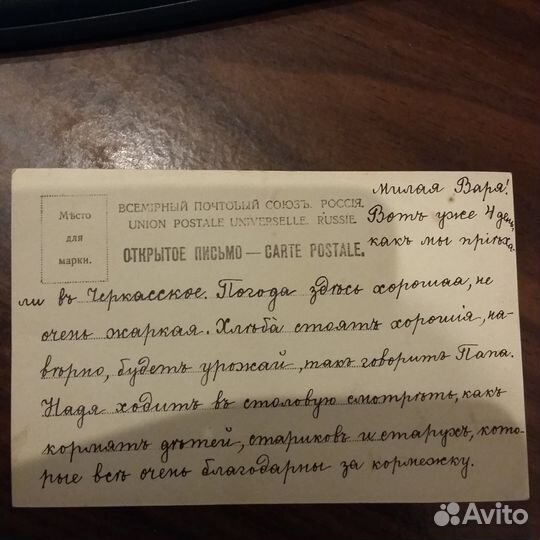 Мѣсто
для
марки.
ВСЕМІРНЫЙ ПОЧТОВЫЙ СОЮЗЪ. РОССІЯ.
UNION POSTALE UNIVERSELLE. RUSSIE
ОТКРЫТОЕ ПИСЬМО — CARTE POSTALE.
Милая Варя!
Вотъ уже 4 день,
какъ мы пріѣха-
ли въ Черкасское. Погода здѣсь хорошая, не
очень жаркая. Хлѣба стоятъ хорошія, на-
вѣрно, будетъ урожай, такъ говоритъ Папа.
Надя ходитъ въ столовую смотрѣть, какъ
кормятъ дѣтей, стариковъ и старухъ, кото-
рые всѣ очень благодарны за кормежку.
Avito